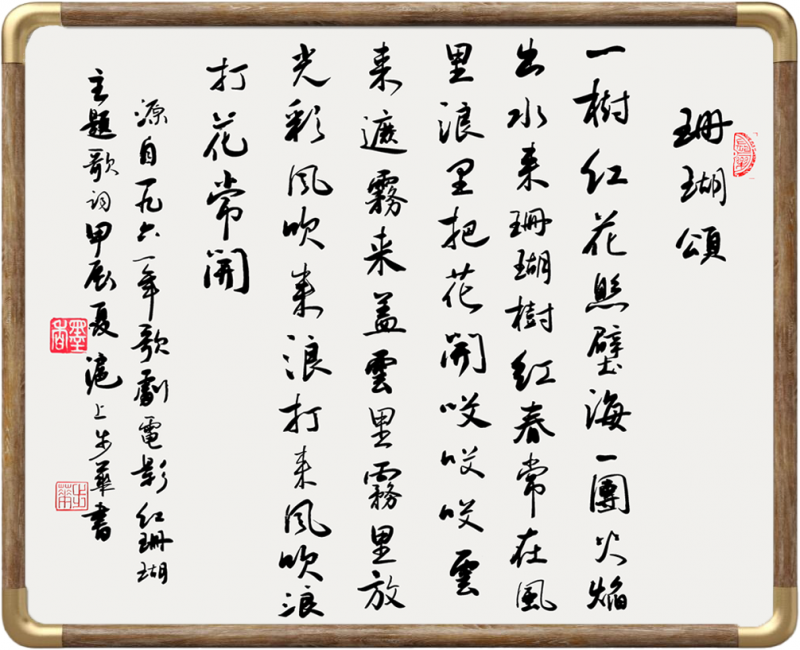 珊瑚頌
一樹红花照壁海一團火焰
出水来珊瑚樹红春常在風
里浪里把花開哎哎哎雲
来遮霧来盖雲里霧里放
光彩风吹来浪打来风吹浪
打花常開
源自一九六一年歌劇電影红珊瑚
主题歌词甲辰夏滬上步華書
墨香